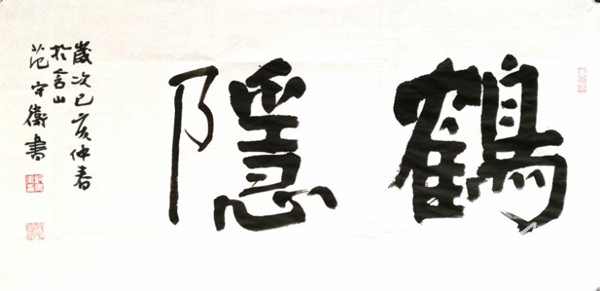 鶴隱
歲次己亥仲春
於言山
范守衛書